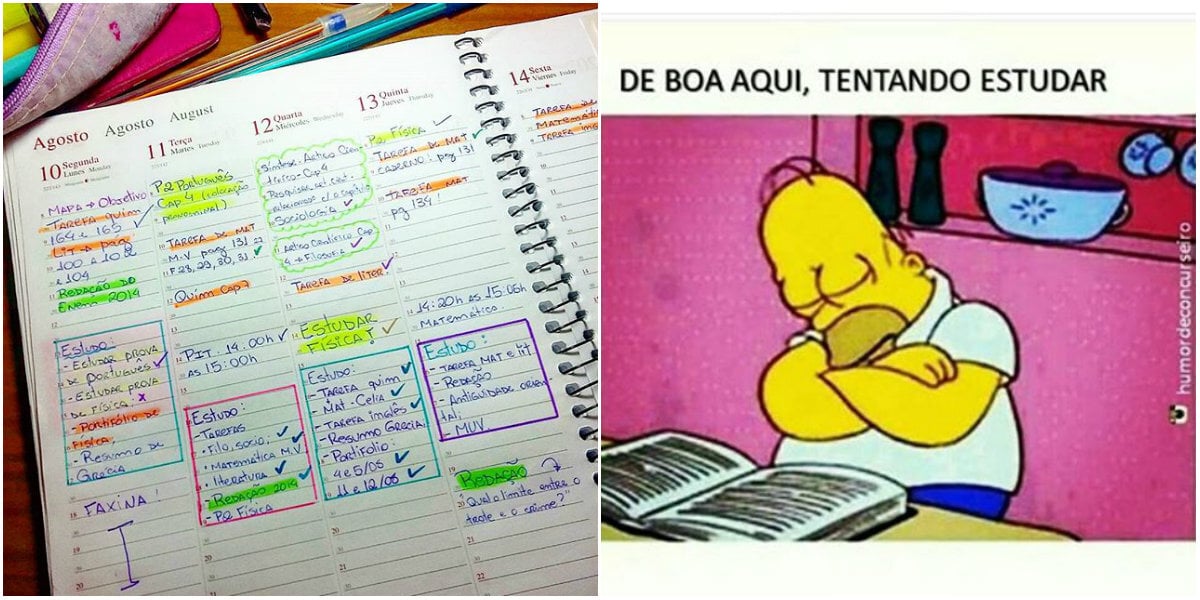 Agosto Agosto August
10 Segunda
Lunes Monday
MAPA → Objetivo
TAREFA quim
164 e 165
LIT → pág
100 a 102
e 104
REDAÇÃO DO
Enem 2014
Estudo:
- Estudar prova
de português
- Estudar prova
de Física! x
- Portifólio de
Física;
- Resumo de
Grécia
FAXINA!
11 Terça
Martes Tuesday
P2 Português
Cap 4 (colocação
pronominal)
TAREFA DE MAT
M.V pag 131
F 28, 29, 30, 31
Quim Cap 7
PIT. 14:00h
às 15:00h
Estudo:
- TAREFAS
• Filo, socio,
• Matemática M.V
• literatura
- REDAÇÃO 2014
- P2 Física
12 Quarta
Miércoles Wednesday
Síntese - Artigo Cien
tífico - Cap 4
Pesquisas
relacionadas c/ o capítulo
Sociologia
Artigo Científico Cap
4 → Filosofia
TAREFA DE LITER.
ESTUDAR
FÍSICA!
Estudo:
- TAREFA quim
- MAT - Celia
- TAREFA inglês
- Resumo Grécia
- Portifolio:
4 e 5/08
11 e 12/08
13 Quinta
Jueves Thursday
P2 Física
TAREFA DE MAT
CADERNO: pg 131
TAREFA MAT
pg 134!
14:20h às 15:05h
Matemática
Estudo:
- TAREFA MAT e lit
- REDAÇÃO
- Antiguidade orien
tal;
- MUV
REDAÇÃO
"Qual o limite entre o
trote e o crime?"
14 Sexta
Viernes Friday
TAREFA DE
MATEMÁTI
TAREFA ing
DE BOA AQUI, TENTANDO ESTUDAR
humordeconcurseiro